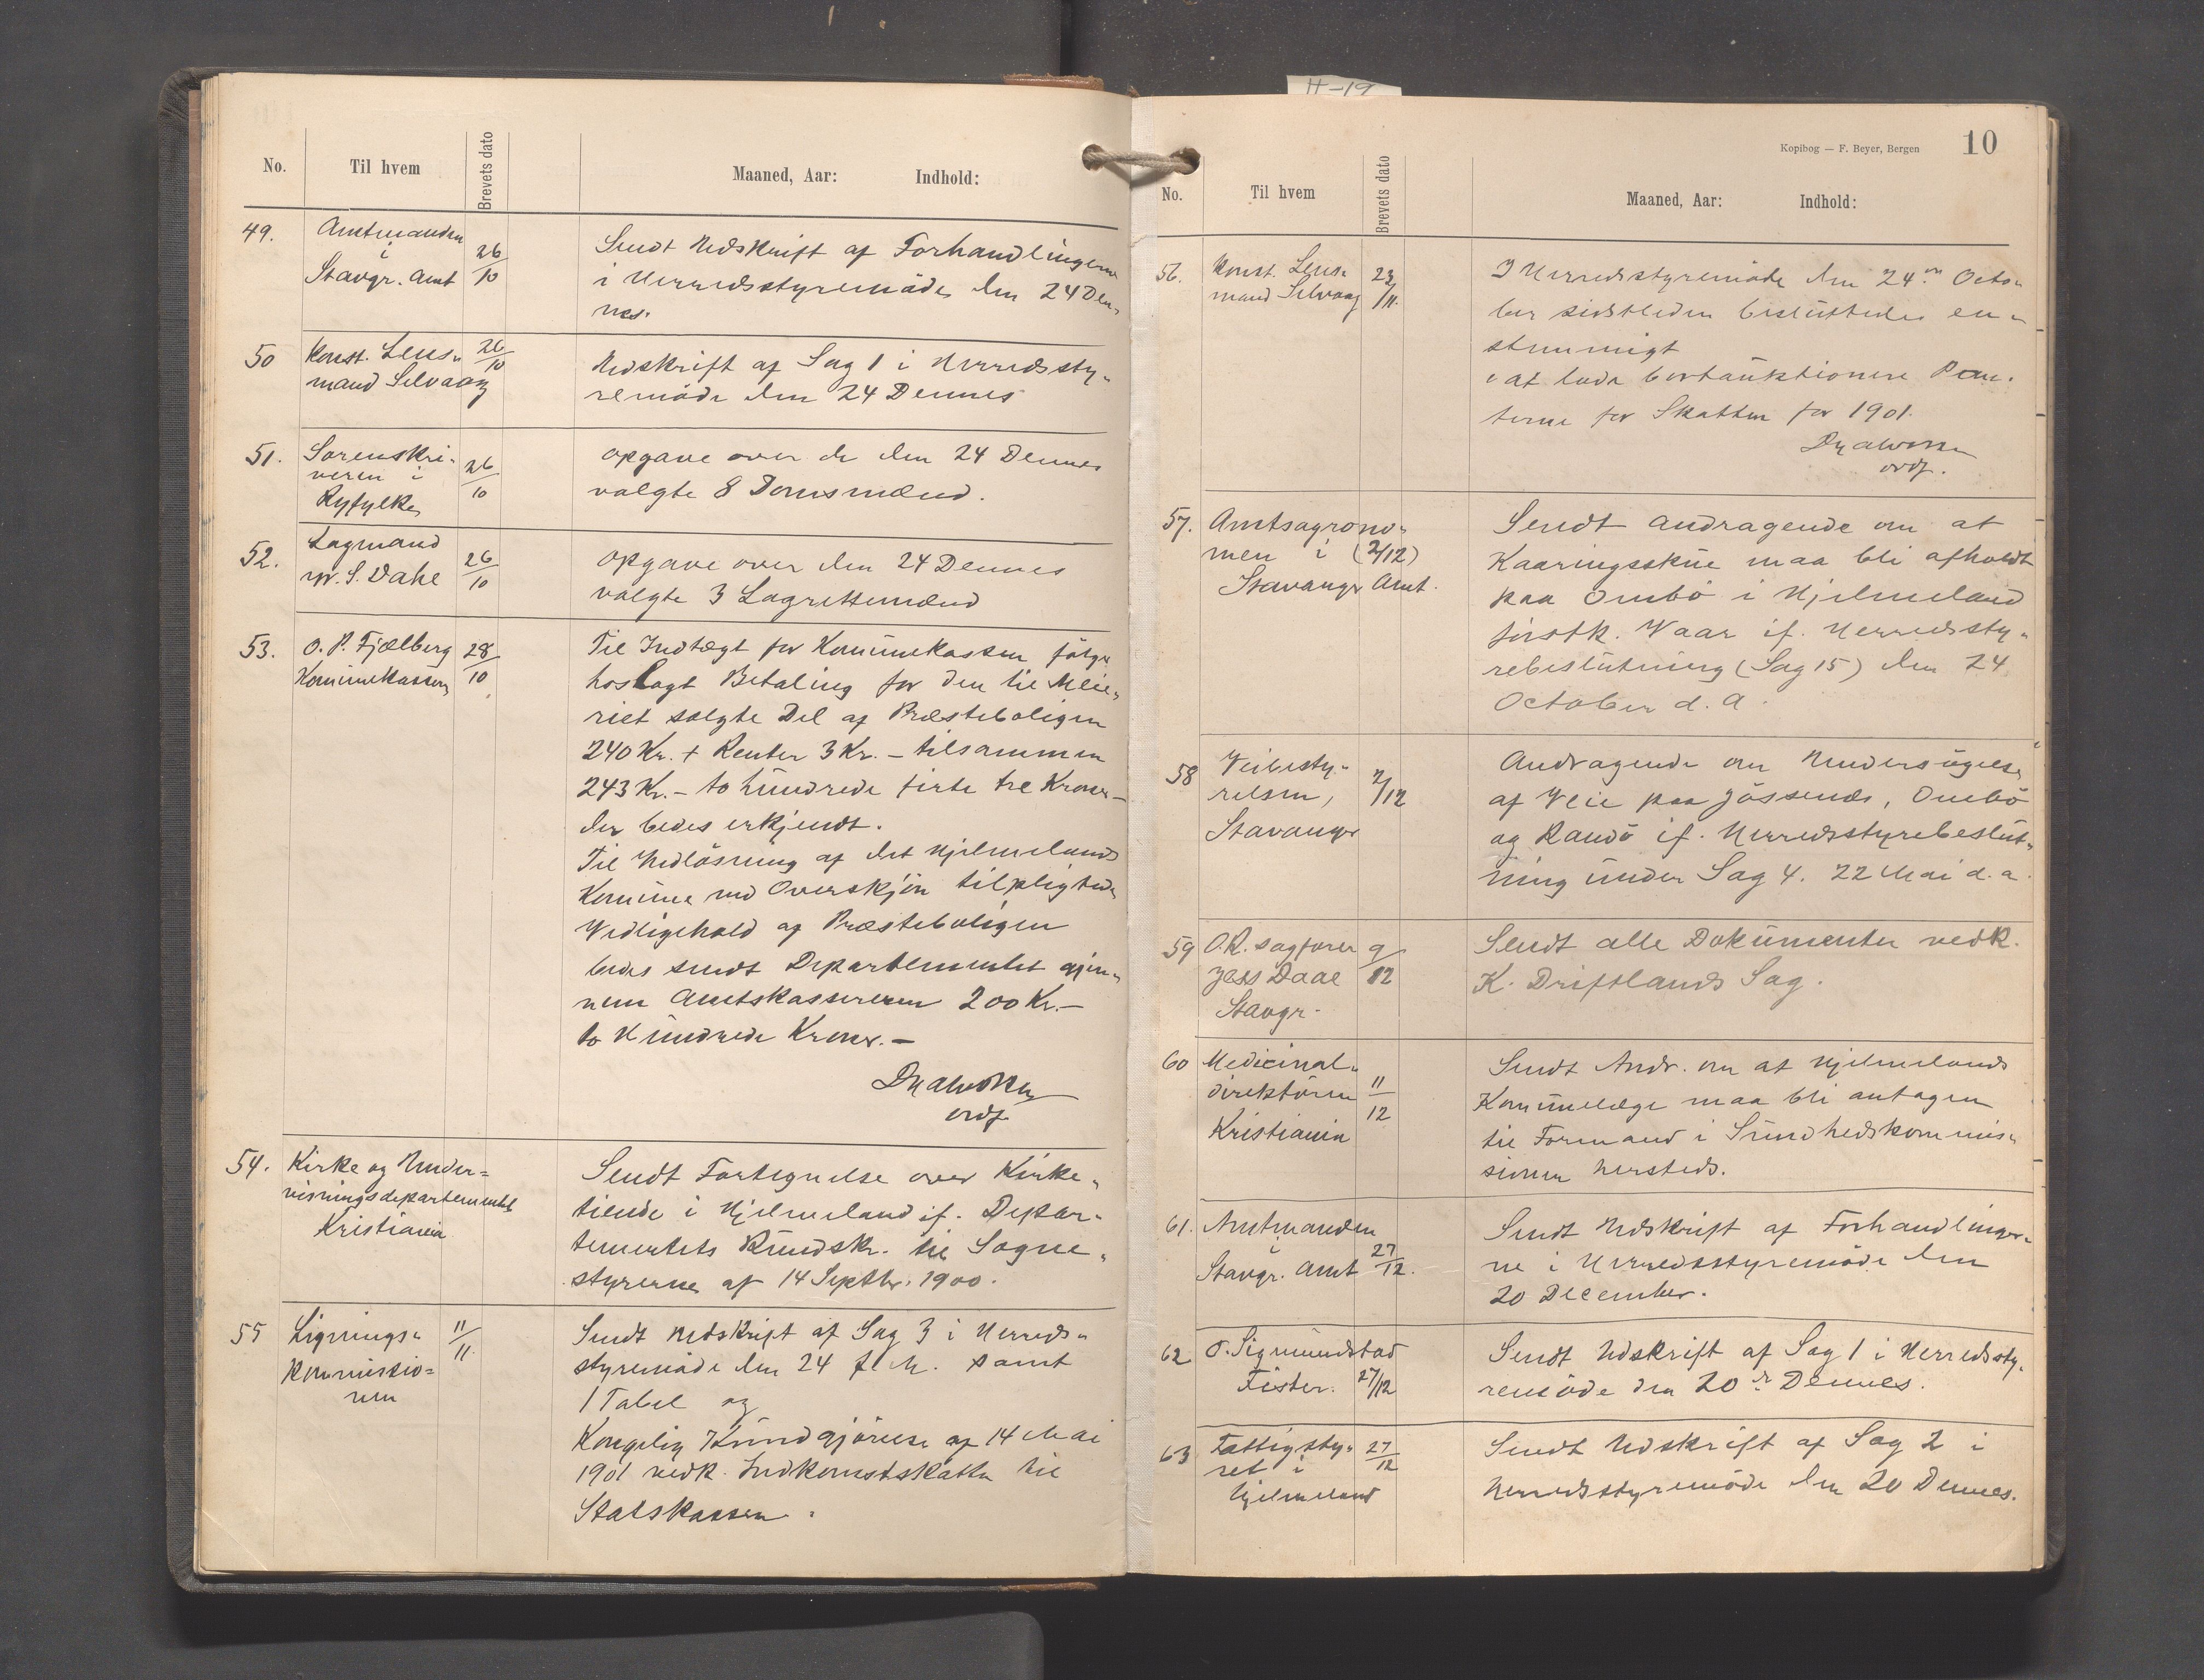 No. Til hvem Brevets dato Maaned, Aar: Indhold:
49. Amtmanden
i
Stavgr. Amt 26/10
Sendt Udskrift af Forhandlingerne
i Herredsstyremöde den 24 Den-
nes.
50 Konst. Lens-
mand Selvaag 26/10
Udskrift af Sag 1 i Herredssty-
remöde den 24 Dennes
51. Sorenskri-
veren i
Ryfylke 26/10
Opgave over de den 24 Dennes
valgte 8 Domsmænd.
52. Lagmand
26/10
Opgave over den 24 Dennes
valgte 3 Lagrettemænd
53. O. P. Fjælberg
Kommunekassen 28/10
Til Indtægt for Kommunekassen följer
hoslagt Betaling for den til Meie-
riet solgte Del af Præsteboligen
240 Kr. + Renter 3 Kr. – tilsammen
243 Kr. – to hundrede firti tre Kroner –
der bedes erkjendt.
Til Indlösning af det Hjelmelands
Komune ved Overskjön tilpligtede
Vedligehold af Præsteboligen
bedes sendt Departementet gjen-
nem Amtskassereren 200 Kr. –
to Hundrede Kroner. –
ordf.
54. Kirke og Under-
visningsdepartementet
Kristiania
Sendt Fortegnelse over Kirke-
tiende i Hjelmeland if. Depar-
tementets Rundskr. til Sogne-
styrerne af 14 Septbr. 1900.
55 Lignings-
kommissio-
nen 11/11.
Sendt Udskrift af Sag 3 i Herreds-
styremöde den 24 f. M. samt
1 Tabel og
Kongelig Kundgjörelse af 14 Mai
1901 vedk. Indkomstskatten til
Statskassen.
H-19
Kopibog — F. Beyer, Bergen 10
No. Til hvem Brevets dato Maaned, Aar: Indhold:
56. Konst. Lens-
mand Selvaag 23/11.
I Herredsstyremöde den 24de Octo-
ber sidstleden besluttedes en-
stemmigt
at lade bortauktionere Pan-
terne for Skatten for 1901.
ordf.
57. Amtsagrono-
men i (2/12)
Stavanger Amt.
Sendt Andragende om at
Kaaringsskue maa bli afholdt
paa Ombö i Hjelmeland
förstk. Vaar if. Herredssty-
rebeslutning (Sag 15) den 24
October d. A.
58 Veibesty-
relsen,
Stavanger 2/12
Andragende om Undersögelse
af Veie paa Jössenes, Ombö
og Randö if. Herredsstyrebeslut-
ning under Sag 4. 22 Mai d. a.
59 O.R. sagförer
Jess Daae
Stavgr. 9/12
Sendt alle Dokumenter vedk.
K. Driftlands Sag.
60 Medicinal-
direktören
Kristiania 11/12
Sendt Andr. om at Hjelmelands
Kommunelæge maa bli antagen
til Formand i Sundhedskommis-
sionen hersteds.
61. Amtmanden
Stavgr. Amt 27/12.
Sendt Udskrift af Forhandlinger-
ne i Herredsstyremöde den
20 December.
62 O. Sigmundstad
Fister. 27/12
Sendt Udskrift af Sag 1 i Herredssty-
remöde den 20de Dennes.
63 Fattigsty-
ret i
Hjelmeland 27/12
Sendt Udskrift af Sag 2 i
Herredsstyremöde den 20 Dennes.